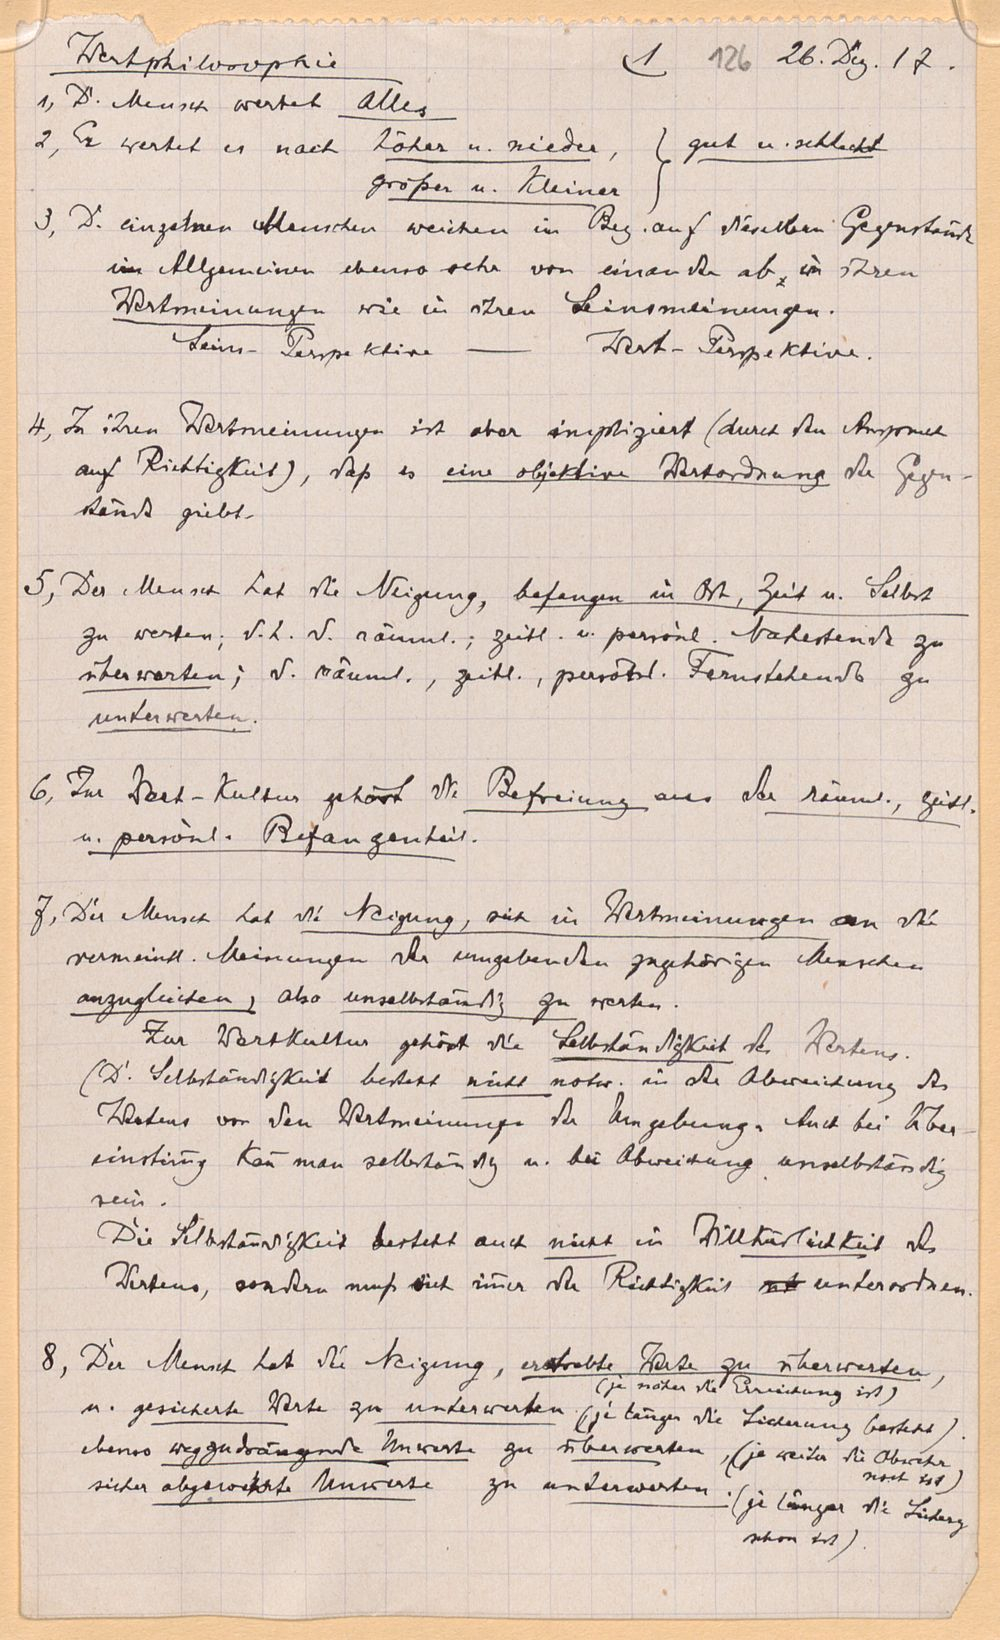 Wertphilosophie 1 126 26. Dez. 17.
1, D. Mensch wertet alles
2, Er wertet es nach höher u. nieder, } gut u. schlecht
größer u. kleiner
3, D. einzelnen Menschen weichen in Bez. auf dieselben Gegenstände
im Allgemeinen ebenso sehr von einander ab, in ihren
Wertmeinungen wie in ihren Seinsmeinungen.
Seins-Perspektive — Wert-Perspektive.
4, In ihren Wertmeinungen ist aber impliziert (durch den Anspruch
auf Richtigkeit), daß es eine objektive Wertordnung der Gegen-
stände giebt.
5, Der Mensch hat die Neigung, befangen in Ort, Zeit u. Selbst
zu werten; d.h. d. räuml.; zeitl. u. persönl. Nahestende zu
überwerten; d. räuml., zeitl., persönl. Fernstehende zu
unterwerten.
6, Zur Wert-Kultur gehört die Befreiung aus der räuml., zeitl.
u. persönl. Befangenheit.
7, Der Mensch hat die Neigung, sich in Wertmeinungen an die
vermeintl. Meinungen der umgebenden zugehörigen Menschen
anzugleichen, also unselbständig zu werten.
Zur Wertkultur gehört die Selbständigkeit des Wertens.
(D. Selbständigkeit besteht nicht notw. in der Abweichung des
Wertens von den Wertmeinungen der Umgebung. Auch bei Über-
einstim̄g kan̄ man selbständig u. bei Abweichung unselbständig
sein.
Die Selbständigkeit besteht auch nicht in Willkürlichkeit des
Wertens, sondern muß sich im̄er der Richtigkeit unterordnen.
8, Der Mensch hat die Neigung, erstrebte Werte zu überwerten,
(je näher die Erreichung ist)
u. gesicherte Werte zu unterwerten (je länger die Sicherung besteht).
ebenso wegzudrängende Unwerte zu überwerten, (je weiter die Abwehr
noch ist)
sicher abgewehrte Unwerte zu unterwerten. (je länger die Sicherg
schon ist).